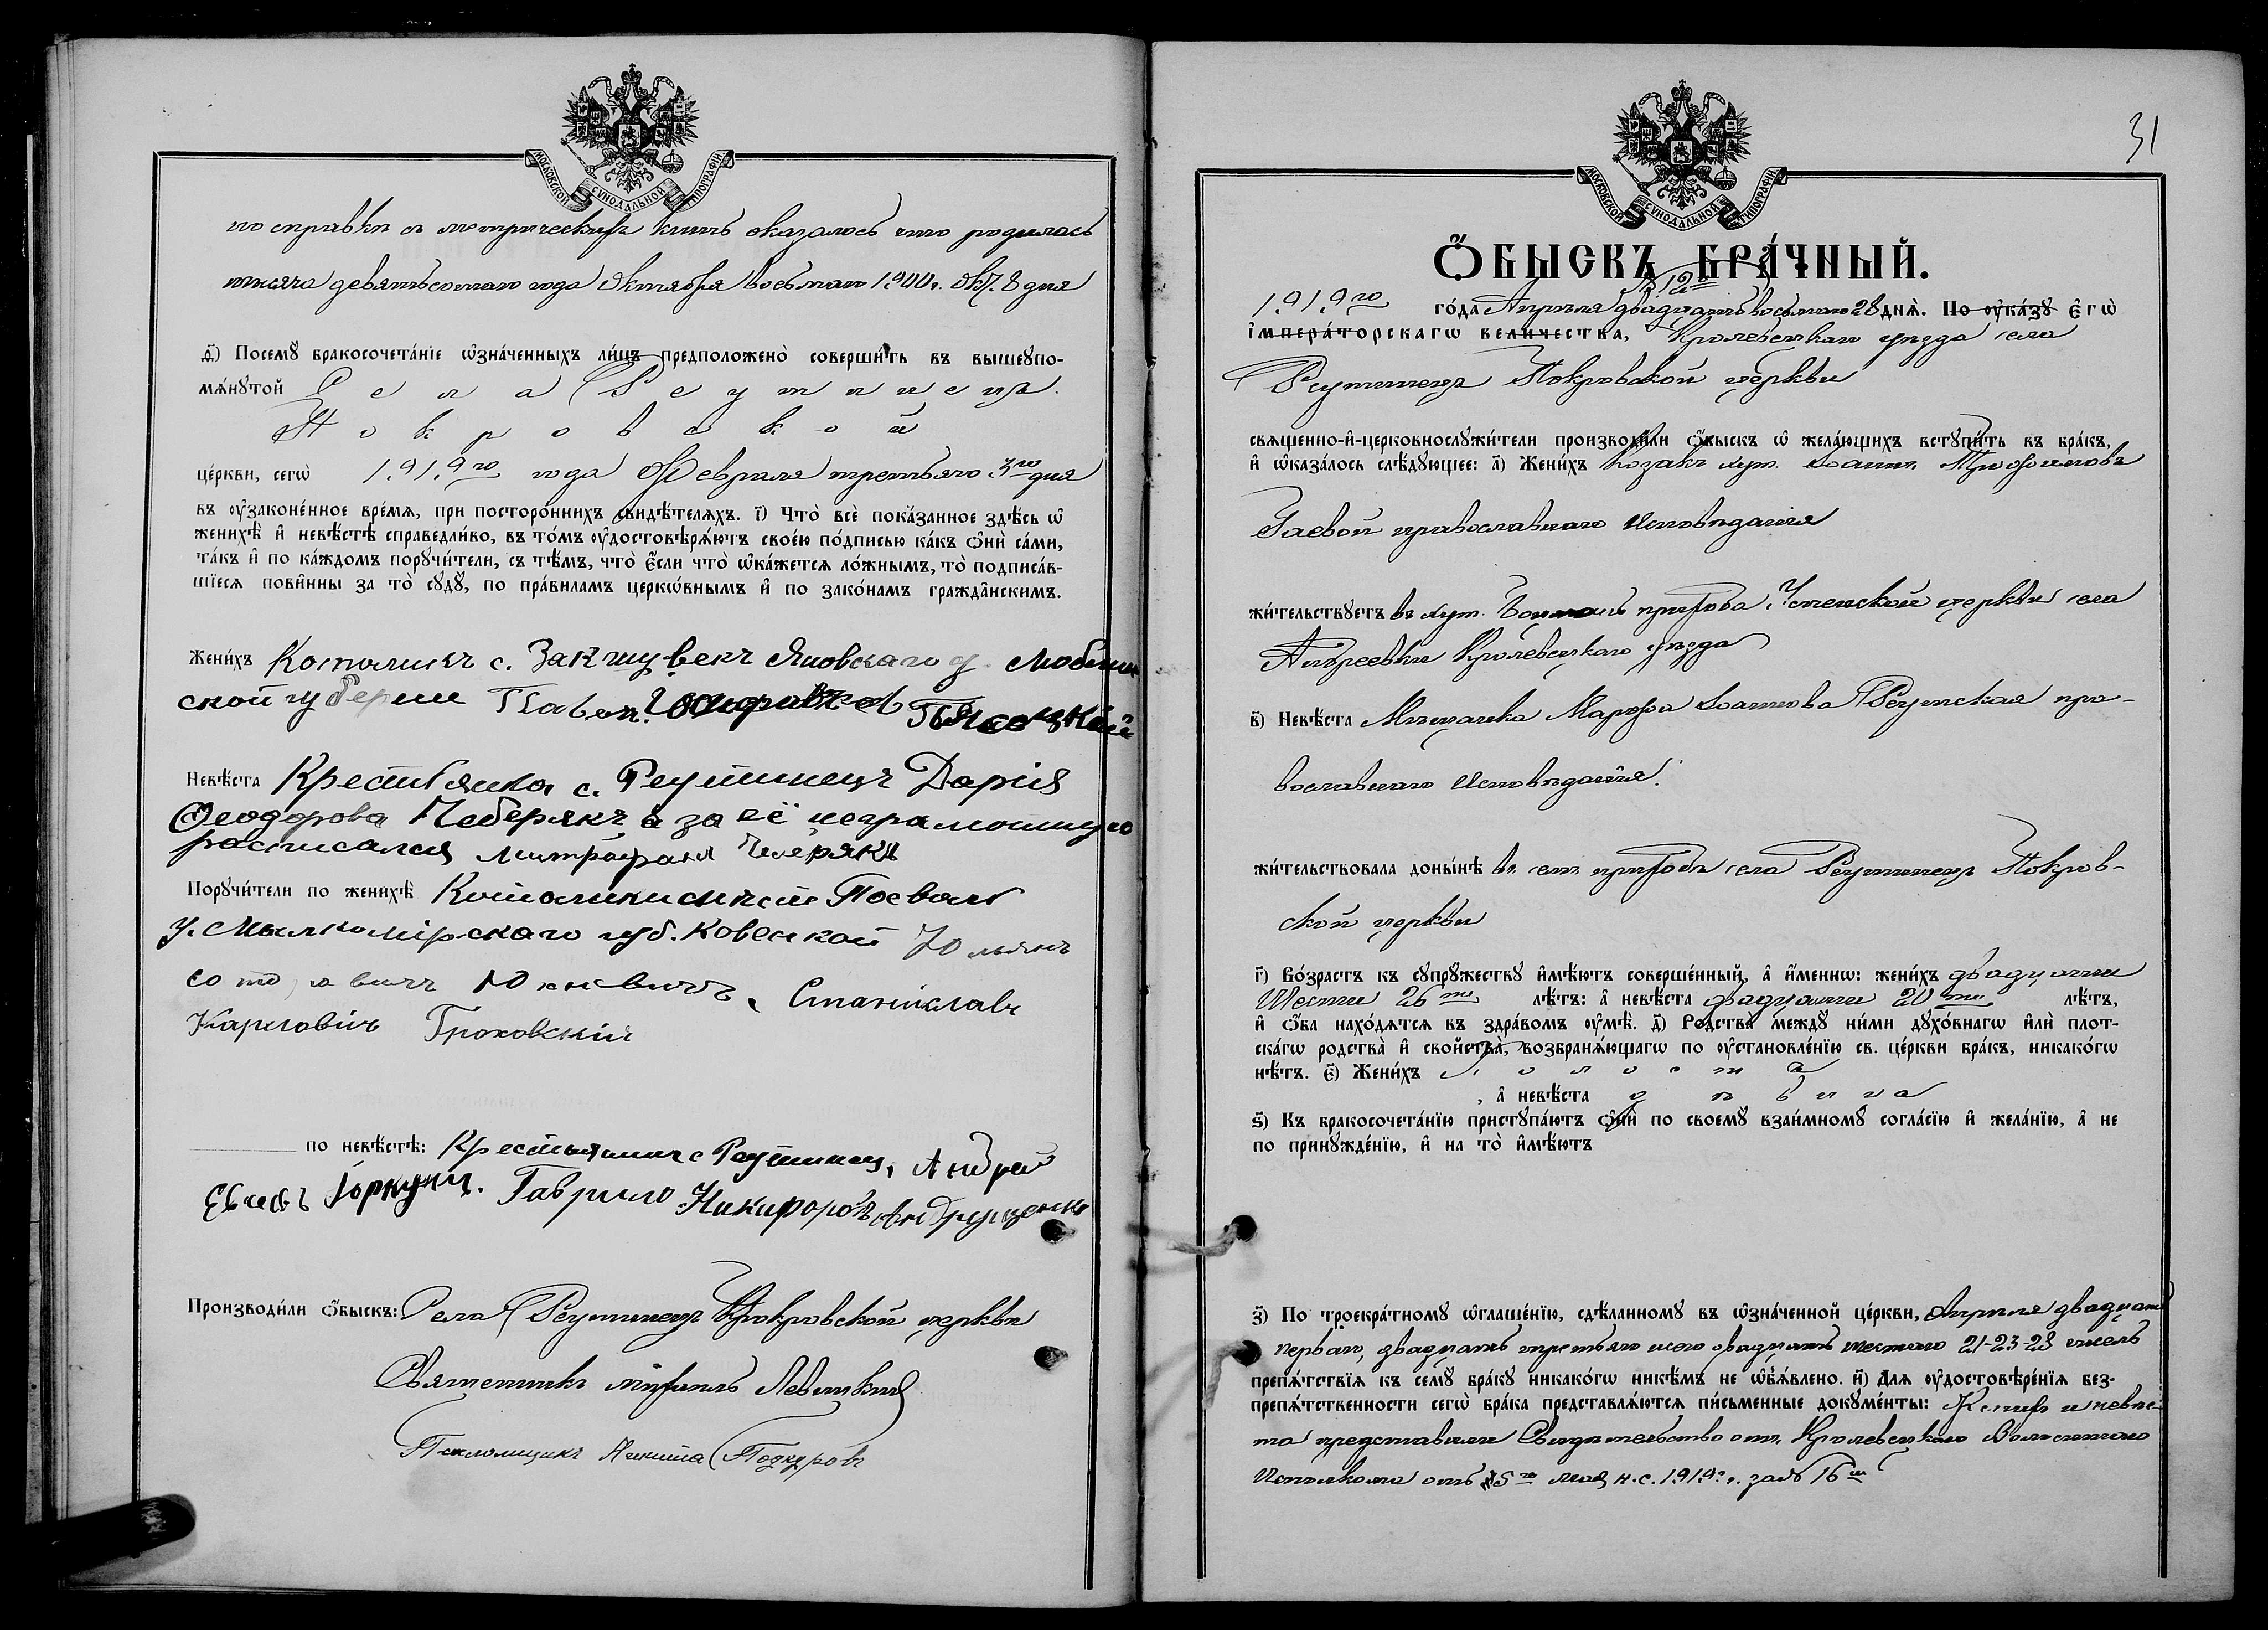 МОСКОВСКОЙ СѴНОДАЛЬНОЙ ТИПОГРАФІИ
по справки съ метрическихъ книгъ оказалось что родилась
тысяча девятьсотаго года Октября восьмаго 1900 г. Окт. 8 дня
ѳ҃) Посемꙋ̀ бракосочета́нїе ѡ҆зна́ченныхъ ли́цъ предположено̀ соверши́ть въ вышеꙋпо-
мѧ́нꙋтой Села Реутинецъ
Покровской
це́ркви, сегѡ̀ 1919го года Февраля третьяго 3го дня
въ ᲂу҆законе́нное вре́мѧ, при посторо́ннихъ свидѣ́телѧхъ. і҃) Что̀ всѐ пока́занное здѣ́сь ѡ҆
женихѣ̀ и҆ невѣ́стѣ справедли́во, въ то́мъ ᲂу҆достовѣрѧ́ютъ свое́ю по́дписью ка́къ ѻ҆нѝ са́ми,
та́къ и҆ по ка́ждомъ порꙋчи́тели, съ тѣ́мъ, что̀ є҆́сли что̀ ѡ҆ка́жетсѧ ло́жнымъ, то̀ подписа́в-
шїесѧ пови́нны за то̀ сꙋдꙋ̀, по пра́виламъ церкѡ́внымъ и҆ по зако́намъ гражда̑нскимъ.
Жени́хъ Католикъ с. Закшувекъ Яновскаго у. Люблин
ской губерніи Павел
Невѣ́ста Крестьянка с. Реутинецъ Дарія
Ѳеодорова Чеберякъ а за её неграмотную
расписался Митрофанъ Чеберякъ
Порꙋчи́тели по женихѣ̀ Католики
губ. Ковенской Юльянъ
Юхневичъ, Станіславъ
Карловичъ Гроховскій
по невѣ́стѣ: Крестьянинъ с Реутинец, Андрей
Гаврило Никифоровъ Андрющенко
Производи́ли ѻ҆́быскъ: Села Реутинецъ Покровской церкви
Священникъ Михаилъ Левицкий
Псаломщикъ Никита
31
МОСКОВСКОЙ СѴНОДАЛЬНОЙ ТИПОГРАФІИ
Ѻ҆́БЫСКЪ БРА́ЧНЫЙ.
№ 12
1919го го́да Апрѣля двадцать восьмаго 28 днѧ̀. По ᲂу҆ка́зꙋ Є҆гѡ̀
и҆мпера́торскагѡ вели́чества, Кролевецкаго уѣзда села
Реутинецъ Покровской церкви
свѧщенно-и҆-церковнослꙋжи́тели производи́ли ѻ҆́быскъ ѡ҆ жела́ющихъ встꙋпи́ть въ бра́къ,
и҆ ѡ҆каза́лось слѣ́дꙋющее: а҃) Жени́хъ Козакъ хут. Іоаннъ Трофимовъ
Гаевой православнаго исповѣданія
жи́тельствꙋетъ въ хут. прихода Успенской церкви села
Андреевки Кролевецкаго уѣзда
в҃) Невѣ́ста Мѣщанка Марфа Іоаннова Реутская пра-
вославнаго исповѣданія.
жи́тельствовала доны́нѣ въ сем. приходѣ села Реутинецъ Покров-
ской церкви
г҃) Во́зрастъ къ сꙋпрꙋ́жествꙋ и҆мѣ́ютъ соверше́нный, а҆ и҆́меннѡ: жени́хъ двадцати
шести 26ти лѣ́тъ: а҆ невѣ́ста двадцати 20ти лѣ́тъ,
и҆ ѻ҆́ба нахо́дѧтсѧ въ здра́вомъ ᲂу҆мѣ̀. д҃) Родства̀ междꙋ̀ ни́ми дꙋхо́внагѡ и҆лѝ плот-
ска́гѡ родства̀ и҆ свойства̀, возбранѧ́ющагѡ по ᲂу҆становле́нїю св. це́ркви бра́къ, никако́гѡ
нѣ́тъ. є҃) Жени́хъ холостъ
, а҆ невѣ́ста дѣвица
ѕ҃) Къ бракосочета́нїю пристꙋпа́ютъ ѻ҆нѝ по своемꙋ̀ взаи́мномꙋ согла́сїю и҆ жела́нїю, а҆ не
по принꙋжде́нїю, и҆ на то̀ и҆мѣ́ютъ
з҃) По троекра́тномꙋ ѡ҆глаше́нїю, сдѣ́ланномꙋ въ ѡ҆зна́ченной це́ркви, Апрѣля двадцать
перваго, двадцать третьяго и двадцать 21-23-28 чиселъ
препѧ́тствїѧ къ семꙋ̀ бра́кꙋ никако́гѡ никѣ́мъ не ѡ҆б̾ѧ́влено. и҃) Для ᲂу҆достовѣре́нїѧ без-
препѧ́тственности сегѡ̀ бра́ка представлѧ́ютсѧ пи́сьменные докꙋме́нты: Женихъ и невѣ-
ста представили Свидѣтельство отъ Кролевецкаго Волостного
Исполкома отъ 5го мая н.с. 1919 г. за № 16м